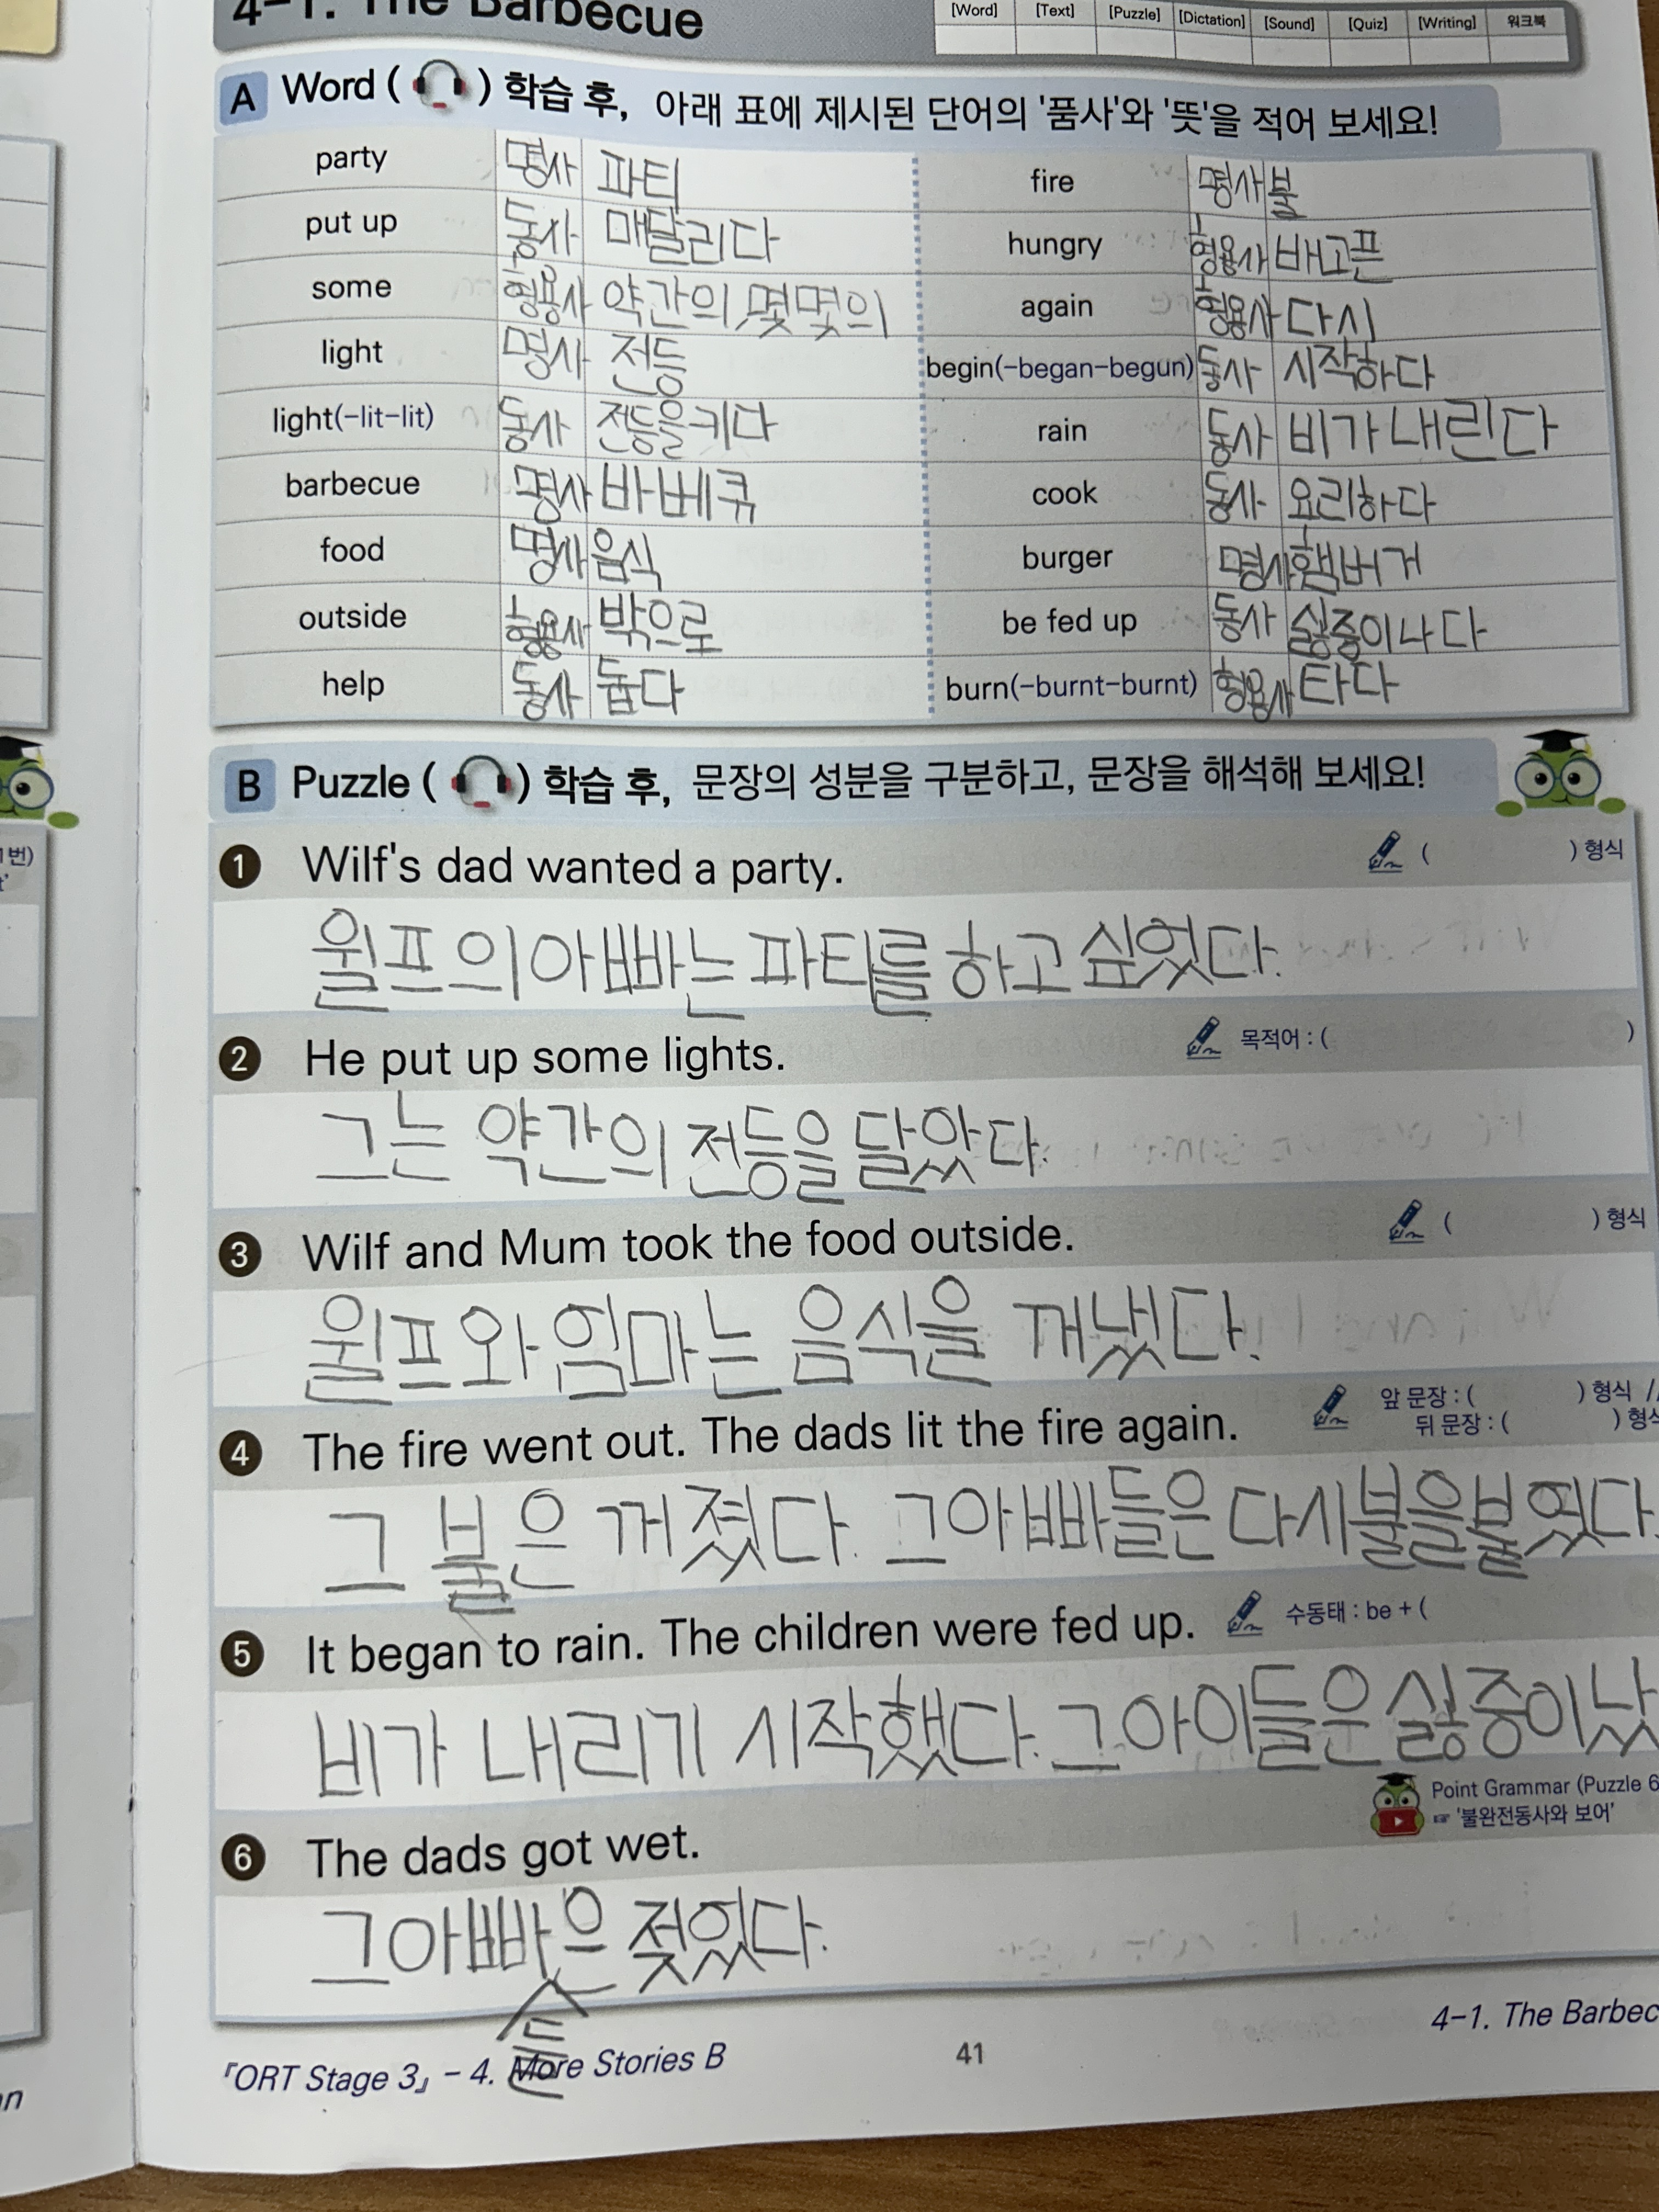 4-1. The Barbecue
[Word] [Text] [Puzzle] [Dictation] [Sound] [Quiz] [Writing] 워크북
A Word ( ) 학습 후, 아래 표에 제시된 단어의 '품사'와 '뜻'을 적어 보세요!
party 명사 파티
put up 동사 매달리다
some 형용사 약간의, 몇몇의
light 명사 전등
light(-lit-lit) 동사 전등을키다
barbecue 명사 바베큐
food 명사 음식
outside 형용사 밖으로
help 동사 돕다
fire 명사 불
hungry 형용사 배고픈
again 형용사 다시
begin(-began-begun) 동사 시작하다
rain 동사 비가내린다
cook 동사 요리하다
burger 명사 햄버거
be fed up 동사 싫증이나다
burn(-burnt-burnt) 형용사 타다
B Puzzle ( ) 학습 후, 문장의 성분을 구분하고, 문장을 해석해 보세요!
1 Wilf's dad wanted a party. ( ) 형식
윌프의아빠는 파티를 하고싶었다.
2 He put up some lights. 목적어 : ( )
그는 약간의 전등을 달았다.
3 Wilf and Mum took the food outside. ( ) 형식
윌프와엄마는 음식을 꺼냈다.
4 The fire went out. The dads lit the fire again. 앞 문장 : ( ) 형식 //
뒤 문장 : ( ) 형식
그 불은 꺼졌다. 그아빠들은다시불을붙였다.
5 It began to rain. The children were fed up. 수동태 : be + (
비가 내리기 시작했다. 그아이들은싫증이났
Point Grammar (Puzzle 6
☞ '불완전동사와 보어'
6 The dads got wet.
그아빠들은 젖었다.
『ORT Stage 3』 - 4. More Stories B
41
4-1. The Barbec
1번)